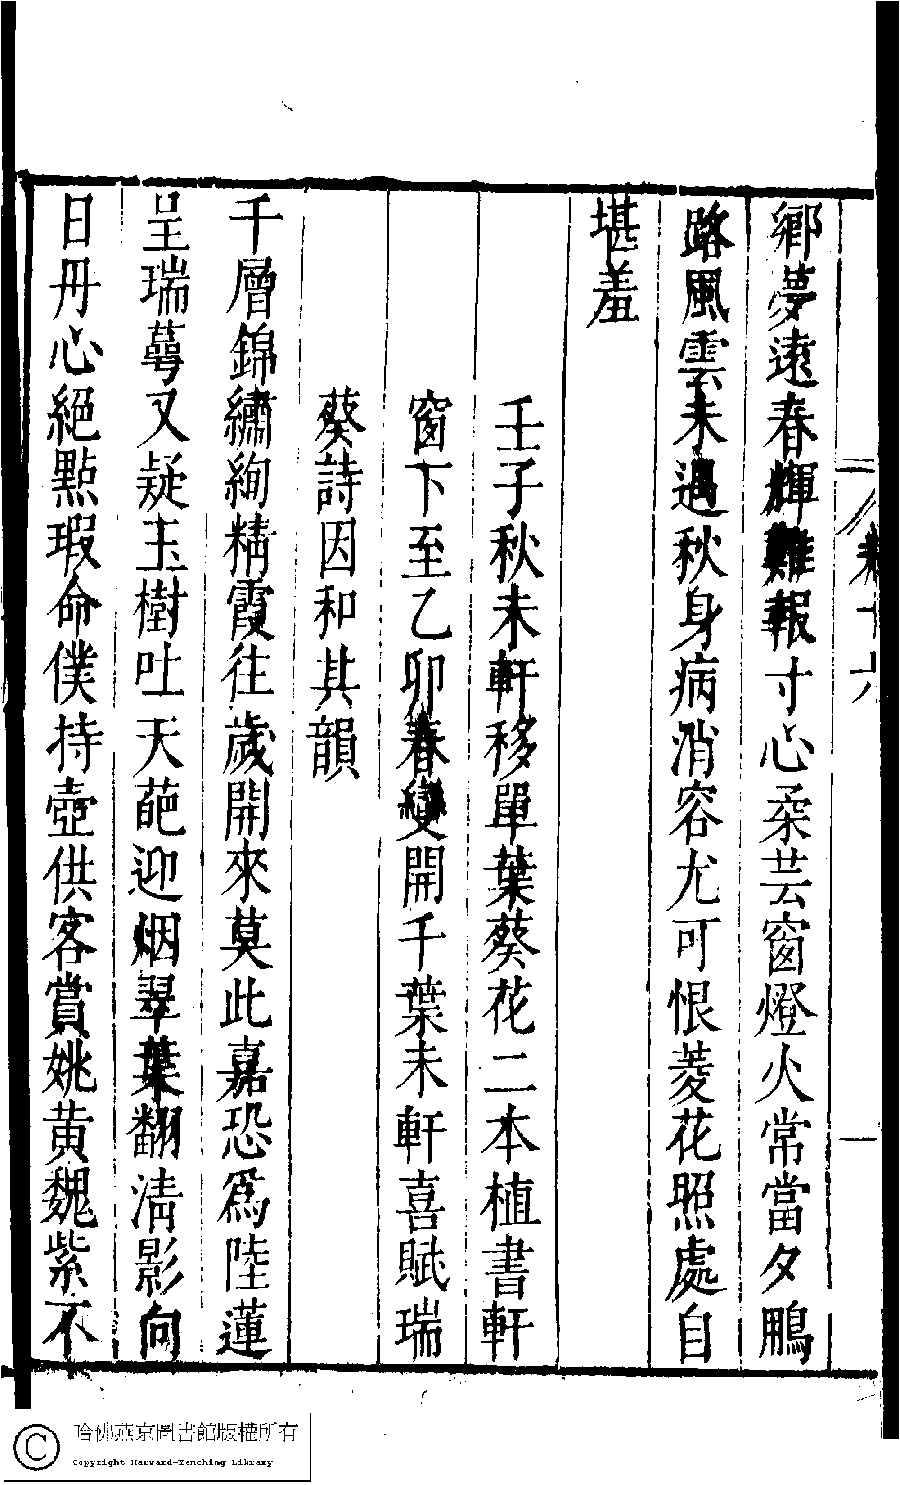 卷十六
一
鄉夢遠春輝難報寸心柔芸窗燈火常當夕鵬
路風雲未遇秋身病消容尤可恨菱花照處自
堪羞
壬子秋未軒移單葉葵花二本植書軒
窗下至乙卯春變開千葉未軒喜賦瑞
葵詩因和其韻
千層錦繡絢精霞往歲開來莫此嘉恐爲陸蓮
呈瑞萼又疑玉樹吐天葩迎烟翠葉翻清影向
日丹心絕點瑕命僕持壺供客賞姚黃魏紫不
哈佛燕京圖書館版權所有
Copyright Harvard-Yenching Library